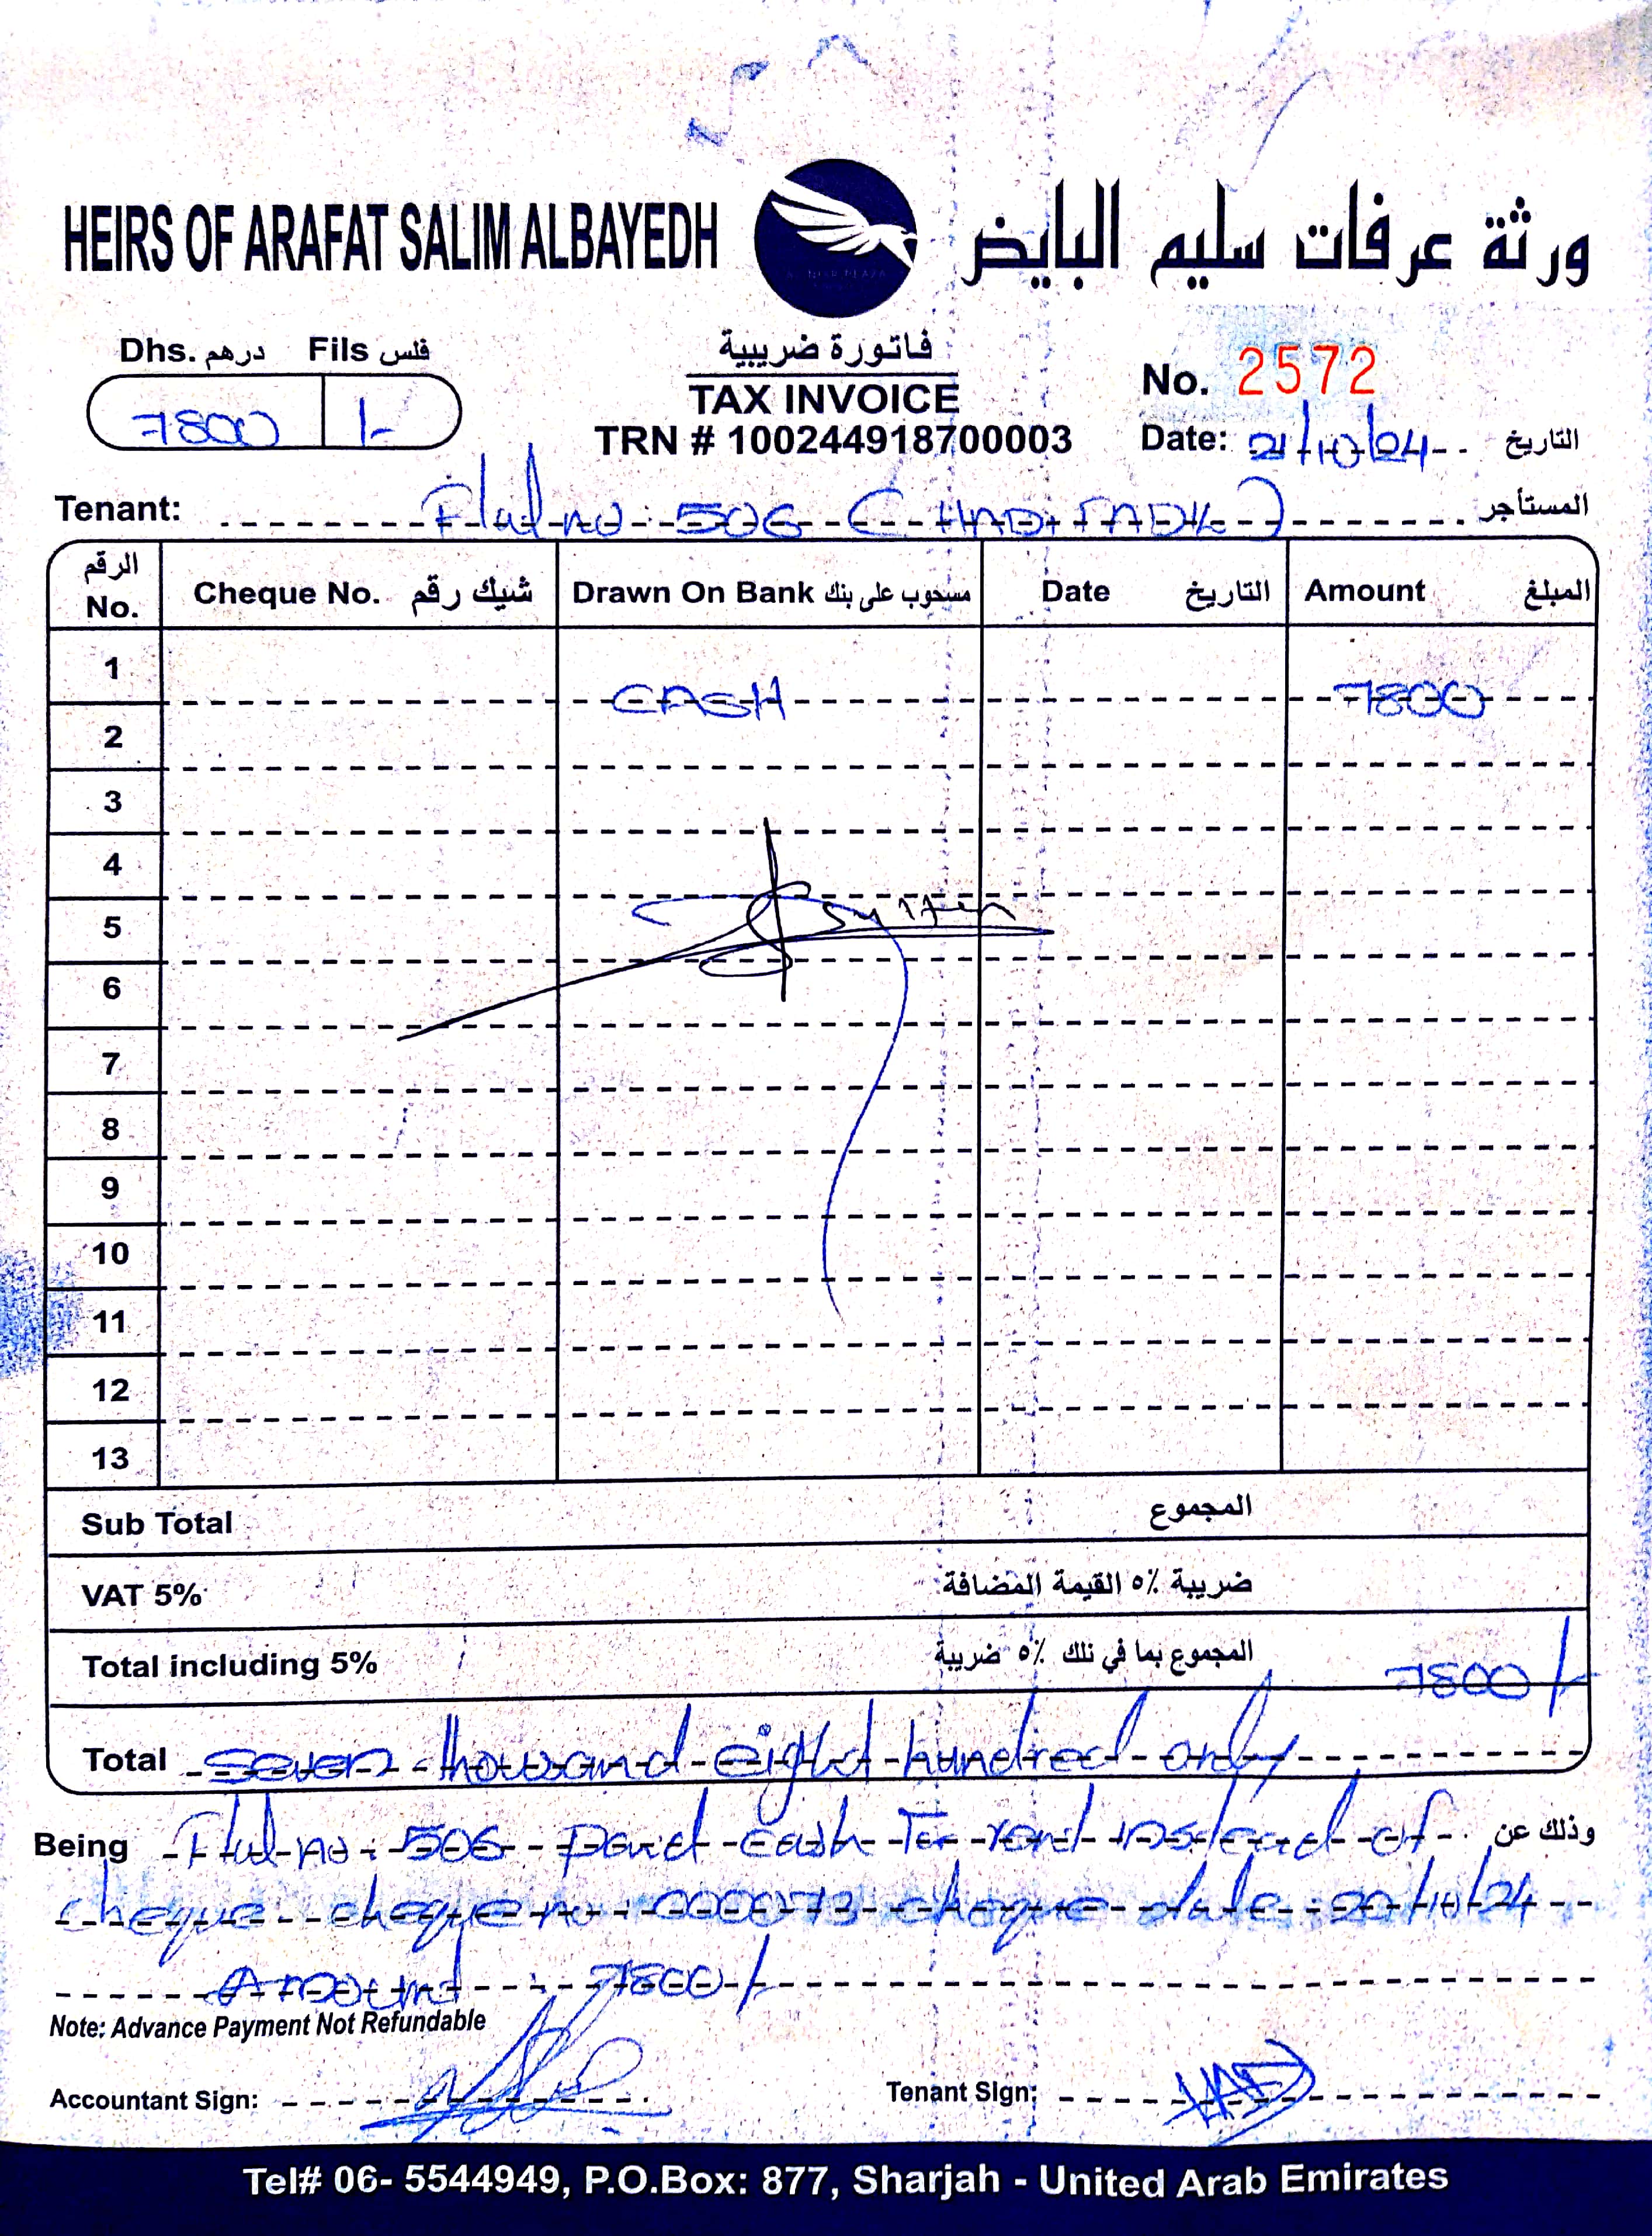 HEIRS OF ARAFAT SALIM ALBAYEDH ورثة عرفات سليم البايض
Dhs. درهم Fils فلس
7800 /-
فاتورة ضريبية
TAX INVOICE
TRN # 100244918700003
No. 2572
Date: 21/10/24 التاريخ
Tenant: Flat no: 506 ( HADI FADIL ) المستأجر
الرقم No. Cheque No. شيك رقم Drawn On Bank مسحوب على بنك Date التاريخ Amount المبلغ
1 CASH 7800
2
3
4
5
6
7
8
9
10
11
12
13
Sub Total المجموع
VAT 5% ضريبة ٥٪ القيمة المضافة
Total including 5% المجموع بما في ذلك ٥٪ ضريبة 7800/-
Total Seven thousand eight hundred only
Being Flat no: 506 paid cash for rent instead of وذلك عن
cheque cheque no: 000073 cheque date: 20/10/24
Amount : 7800/-
Note: Advance Payment Not Refundable
Accountant Sign: Tenant Sign:
Tel# 06- 5544949, P.O.Box: 877, Sharjah - United Arab Emirates